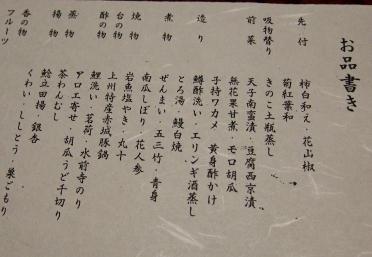 お品書き
先付 柿白和え・花山椒
菊紅葉和
吸物替り きのこ土瓶蒸し
前菜 天子南蛮漬・豆腐西京漬
無花果甘煮・モロ胡瓜
子持ワカメ 黄身酢かけ
造り 鱒酢洗い・エリンギ酒蒸し
とろ湯・鰻白焼
煮物 ぜんまい・五三竹・青身
南瓜しぼり・花人参
焼物 岩魚塩やき・丸十
台の物 上州特産赤城豚鍋
酢の物 鯉洗い・茗荷・水前寺のり
蒸し物 アロエ寄せ・胡瓜うど千切り
茶わんむし
揚物 鯰立田揚・銀杏
くわい・ししとう・巣ごもり
香の物
フルーツ